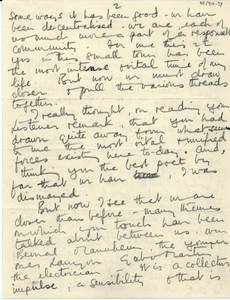 2
Some ways it has been good – we have
been decentralised – we are each of
us much more a part of a responsible
community. For me this 2½
yrs in this small town has been
the most intense vital time of my
life. But now we must draw
closer & pull the various threads
together.
I really thought on reading your
Listener remark that you had
drawn quite away from what seems
to me the most vital &
forces exist here to-day. And,
thinking you the best poet by
far that we have, I was
dismayed.
But now I see that we are
closer than before – many themes
on which you touch have been
talked about between us, von
Bernal Mannheim the younger
men
the electrician. It is a collective
impulse, a sensibility & that is